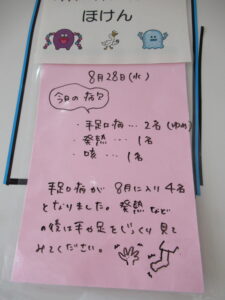 ほけん
8月28日(水)
今日の病欠
・手足口病…2名(ゆめ)
・発熱…1名
・咳…1名
手足口病が8月に入り4名
となりました。発熱など
の後は手や足をじっくり見て
みてください。